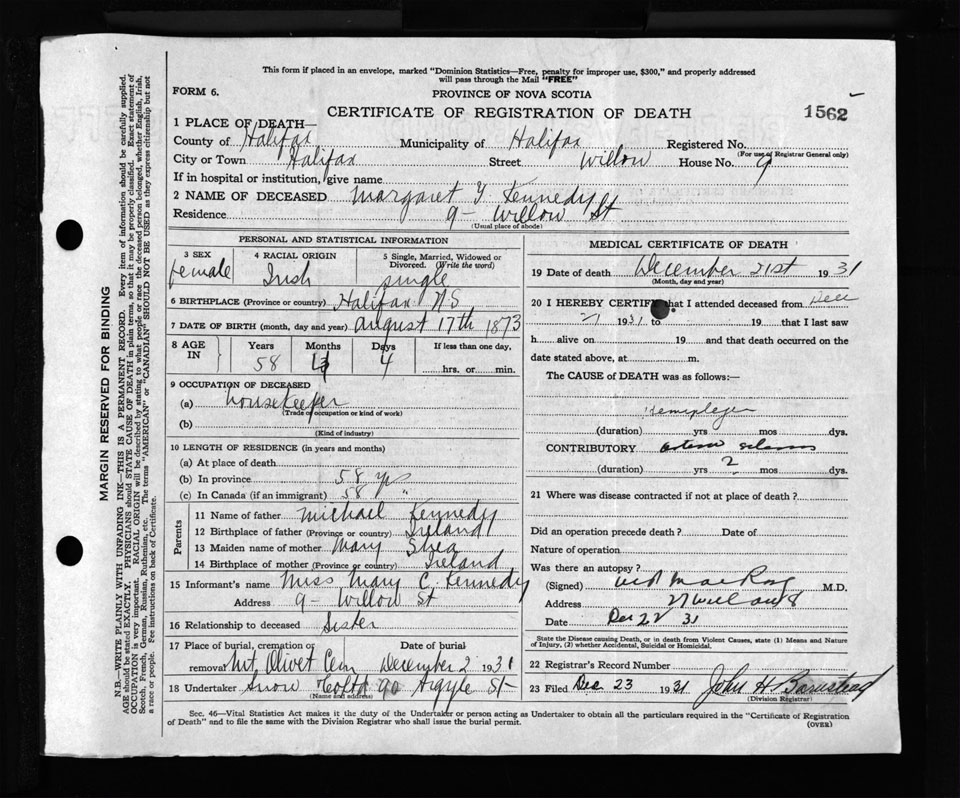 This form if placed in an envelope, marked "Dominion Statistics—Free, penalty for improper use, $300," and properly addressed
will pass through the Mail "FREE"
FORM 6.
PROVINCE OF NOVA SCOTIA
CERTIFICATE OF REGISTRATION OF DEATH
1562
1 PLACE OF DEATH—
County of Halifax Municipality of Halifax Registered No.
(For use of Registrar General only)
City or Town Halifax Street Willow House No. 9
If in hospital or institution, give name
2 NAME OF DECEASED Margaret Y Kennedy
Residence 9- Willow St
(Usual place of abode)
PERSONAL AND STATISTICAL INFORMATION
3 SEX
female
4 RACIAL ORIGIN
Irish
5 Single, Married, Widowed or
Divorced. (Write the word)
single
6 BIRTHPLACE (Province or country) Halifax NS
7 DATE OF BIRTH (month, day and year) august 17th 1873
8 AGE IN
Years Months Days If less than one day,
58 4 hrs. or min.
9 OCCUPATION OF DECEASED
(a) housekeeper
(Trade or occupation or kind of work)
(b)
(Kind of industry)
10 LENGTH OF RESIDENCE (in years and months)
(a) At place of death
(b) In province 58 yrs
(c) In Canada (if an immigrant) 58 "
Parents
11 Name of father Michael Kennedy
12 Birthplace of father (Province or country) Ireland
13 Maiden name of mother Mary Shea
14 Birthplace of mother (Province or country) Ireland
15 Informant's name Miss Mary C. Kennedy
Address 9- Willow St
16 Relationship to deceased Sister
17 Place of burial, cremation or removal Mt. Olivet Cem
Date of burial
December 2 1931
18 Undertaker Snow 90 Argyle St
(Name and address)
MEDICAL CERTIFICATE OF DEATH
19 Date of death December 21st 1931
(Month, day and year)
20 I HEREBY CERTIFY that I attended deceased from Dec
21 1931 to 19 that I last saw
h alive on 19 and that death occurred on the
date stated above, at m.
The CAUSE of DEATH was as follows:—
Hemiplegia
(duration) yrs mos dys.
CONTRIBUTORY
(duration) yrs 2 mos dys.
21 Where was disease contracted if not at place of death?
Did an operation precede death? Date of
Nature of operation
Was there an autopsy?
(Signed) M.D.
Address
Date Dec 22 31
State the Disease causing Death, or in death from Violent Causes, state (1) Means and Nature
of Injury, (2) whether Accidental, Suicidal or Homicidal.
22 Registrar's Record Number
23 Filed Dec 23 1931 John H Barnstead
(Division Registrar)
Sec. 46—Vital Statistics Act makes it the duty of the Undertaker or person acting as Undertaker to obtain all the particulars required in the "Certificate of Registration
of Death" and to file the same with the Division Registrar who shall issue the burial permit.
(OVER)
MARGIN RESERVED FOR BINDING
N.B.—WRITE PLAINLY WITH UNFADING INK—THIS IS A PERMANENT RECORD. Every item of information should be carefully supplied.
AGE should be stated EXACTLY. PHYSICIANS should STATE CAUSE OF DEATH in plain terms, so that it may be properly classified. Exact statement of
OCCUPATION is very important. RACIAL ORIGIN will be described by stating to what people or race the deceased person belonged, whether English, Irish,
Scotch, French, German, Russian, Ruthenian, etc. The terms "AMERICAN" or "CANADIAN" SHOULD NOT BE USED as they express citizenship but not
a race or people. Fee instructions on back of Certificate.